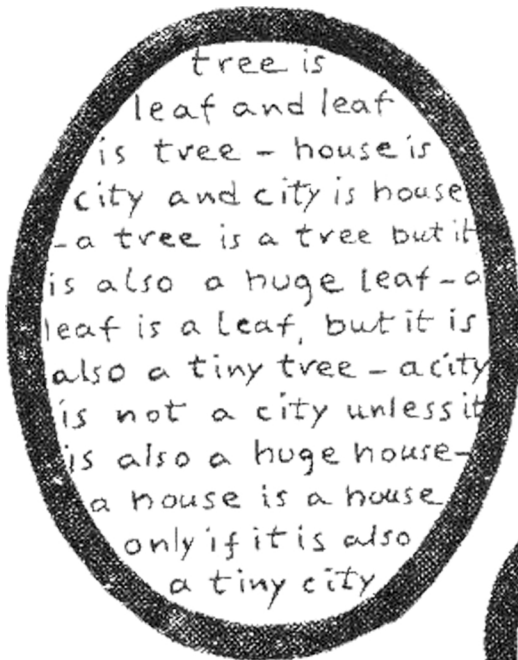 tree is
leaf and leaf
is tree – house is
city and city is house
– a tree is a tree but it
is also a huge leaf – a
leaf is a leaf, but it is
also a tiny tree – a city
is not a city unless it
is also a huge house –
a house is a house
only if it is also
a tiny city